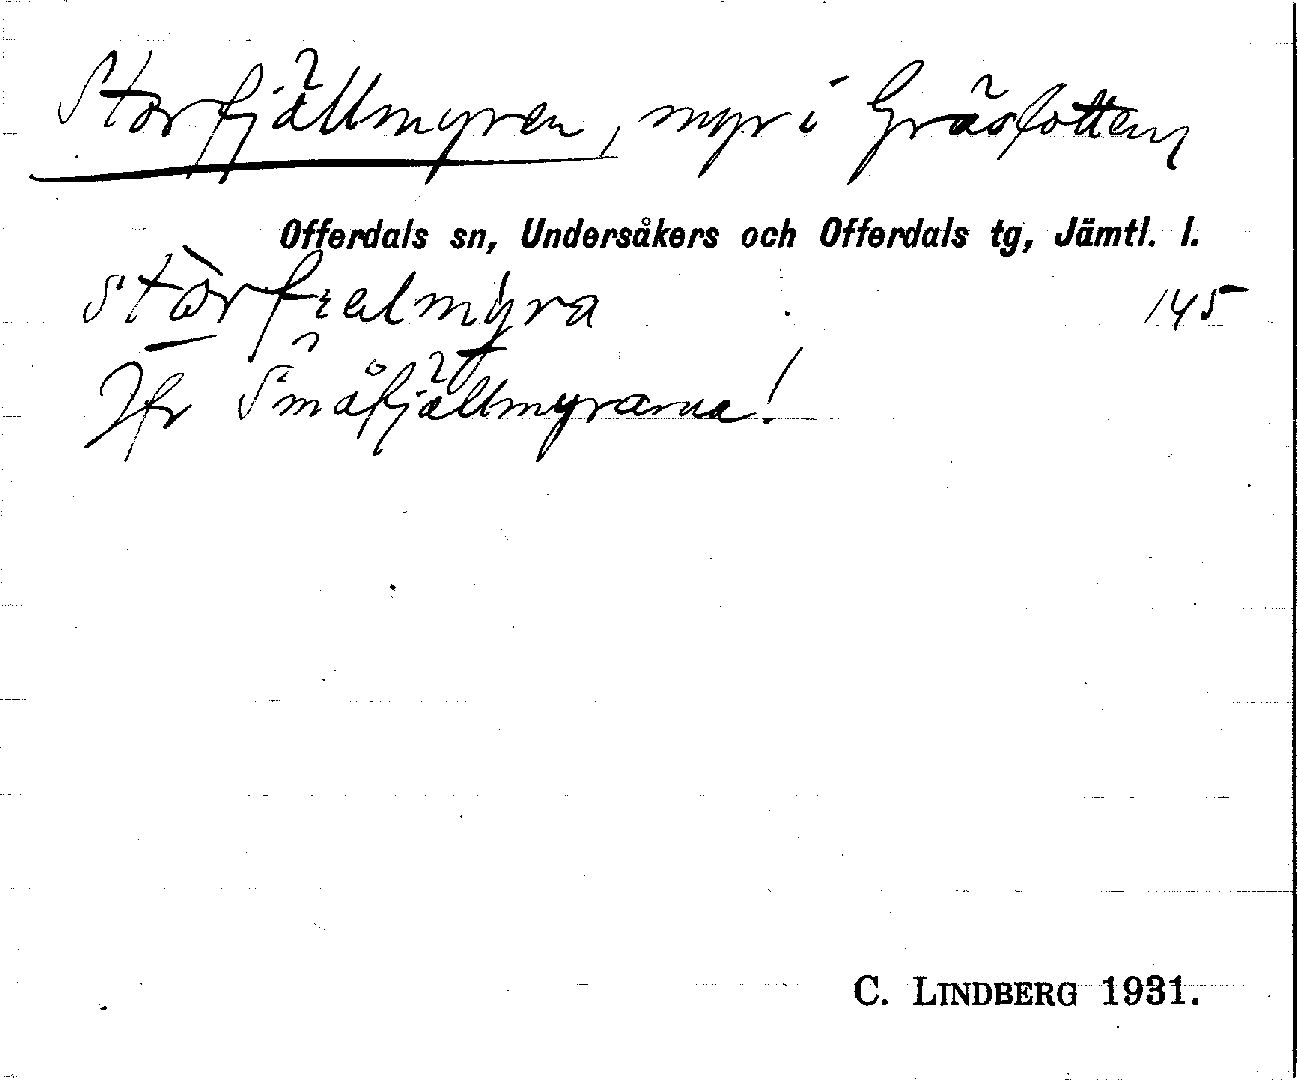 Storfjällmyren, myr i Gräsfotten,
Offerdals sn, Undersåkers och Offerdals tg, Jämtl. l.
145
Jfr Småfjällmyrarna!
C. LINDBERG 1931.